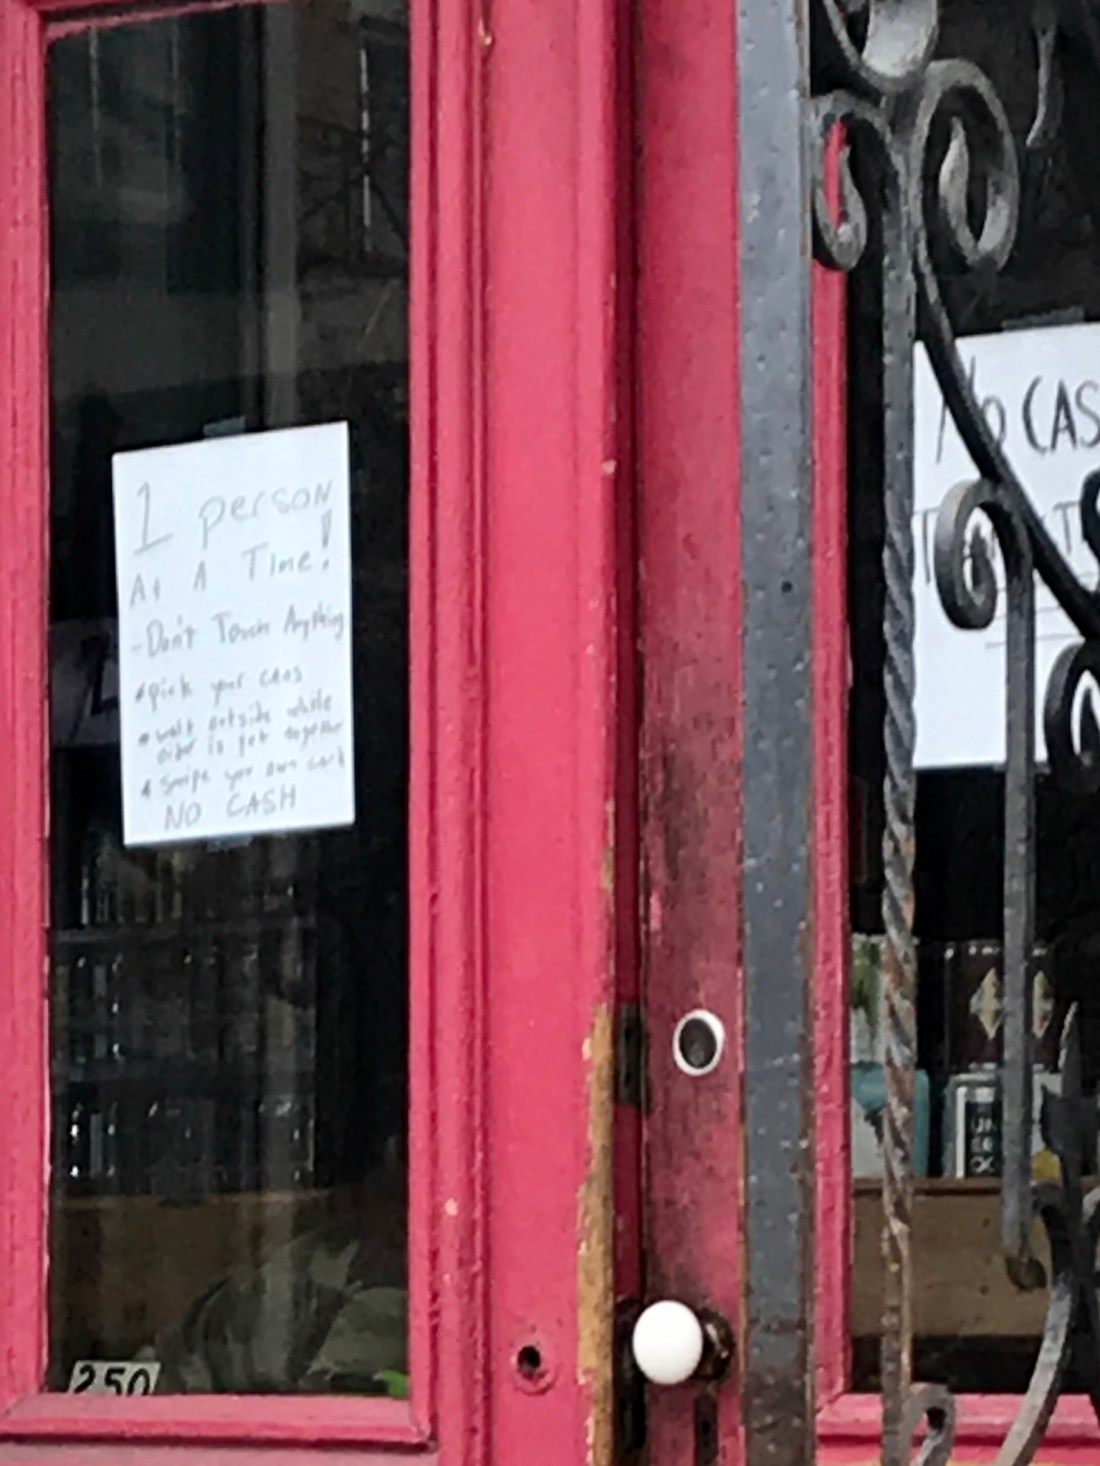 1 person
At A Time!
- Don't Touch Anything
* pick your cans
* wait outside while
order is put together
* swipe your own card
NO CASH
No CAS
250